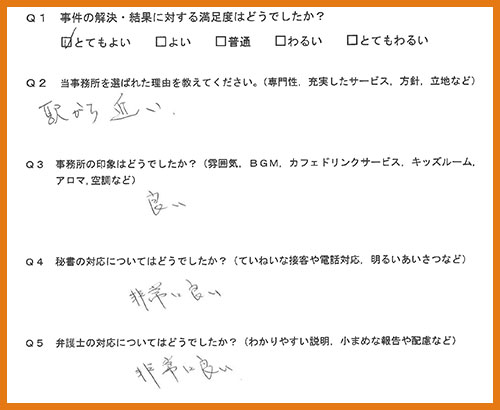 Q1 事件の解決・結果に対する満足度はどうでしたか？
☑とてもよい □よい □普通 □わるい □とてもわるい
Q2 当事務所を選ばれた理由を教えてください。（専門性，充実したサービス，方針，立地など）
駅から近い．
Q3 事務所の印象はどうでしたか？（雰囲気，BGM，カフェドリンクサービス，キッズルーム，
アロマ,空調など）
良い
Q4 秘書の対応についてはどうでしたか？（ていねいな接客や電話対応，明るいあいさつなど）
非常に良い
Q5 弁護士の対応についてはどうでしたか？（わかりやすい説明，小まめな報告や配慮など）
非常に良い